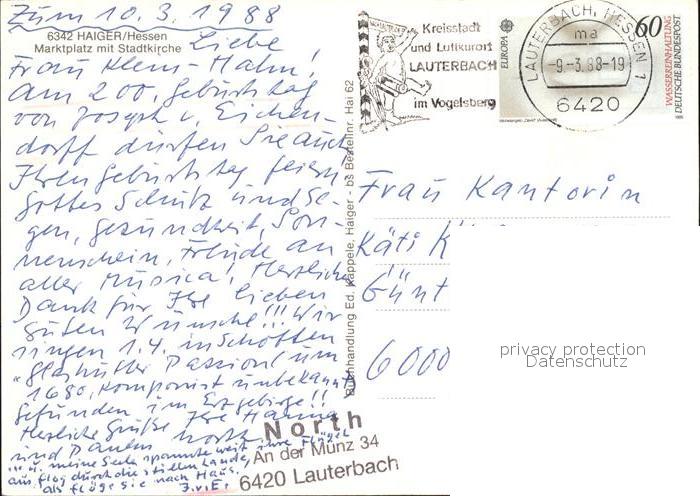 Zum 10. 3. 1988
6342 HAIGER/Hessen
Marktplatz mit Stadtkirche
Liebe
Frau Klein-Hahn!
Am 200. Geburtstag
von Joseph v. Eichen-
dorff dürfen Sie auch
Ihren Geburtstag feiern
Gottes Schutz und Se-
gen, Gesundheit, Son-
nenschein, Freude an
aller Musica! Herzlichen
Dank für Ihre lieben
guten Wünsche!!! Wir
singen 1.4. in Schotten
"Glashütter Passion" um
1680, Komponist unbekannt
gefunden im Erzgebirge!!
Herzliche Grüße Ihre Hanna
und Paul North
"... u. meine Seele spannte weit ihre Flügel
aus, flog durch die stillen Lande,
als flöge sie nach Haus.
J.v.E.
Buchhandlung Ed. Kappele, Haiger - bs Bestellnr. Hai 62
Kreisstadt
und Luftkurort
LAUTERBACH
im Vogelsberg
EUROPA
60
WASSERREINHALTUNG
DEUTSCHE BUNDESPOST
LAUTERBACH, HESSEN 1
ma
-9.-3.88-19
6420
Frau Kantorin
Käti K
Günt
6000
North
An der Münz 34
6420 Lauterbach
privacy protection
Datenschutz